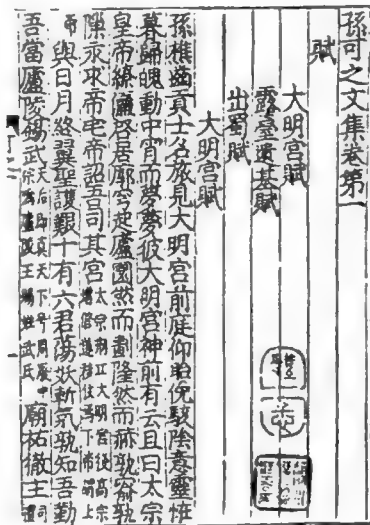 孫可之文集卷第一
賦
大明宮賦
露臺遺基賦
出蜀賦
大明宮賦
孫樵齒貢士名旅見大明宮前庭仰眙俛駭陰意靈怪
暮歸魄動中宵而夢夢彼大明宮神前有云且曰太宗
皇帝繚瀛啓居廓穹起廬圜然而劃隆然而赫孰窬孰
隙永求帝宅帝詔吾司其宮
與日月終翼聖護艱十有六君蕩妖斬氛孰知吾勤
吾當廬陵錫武 廟祐徹主